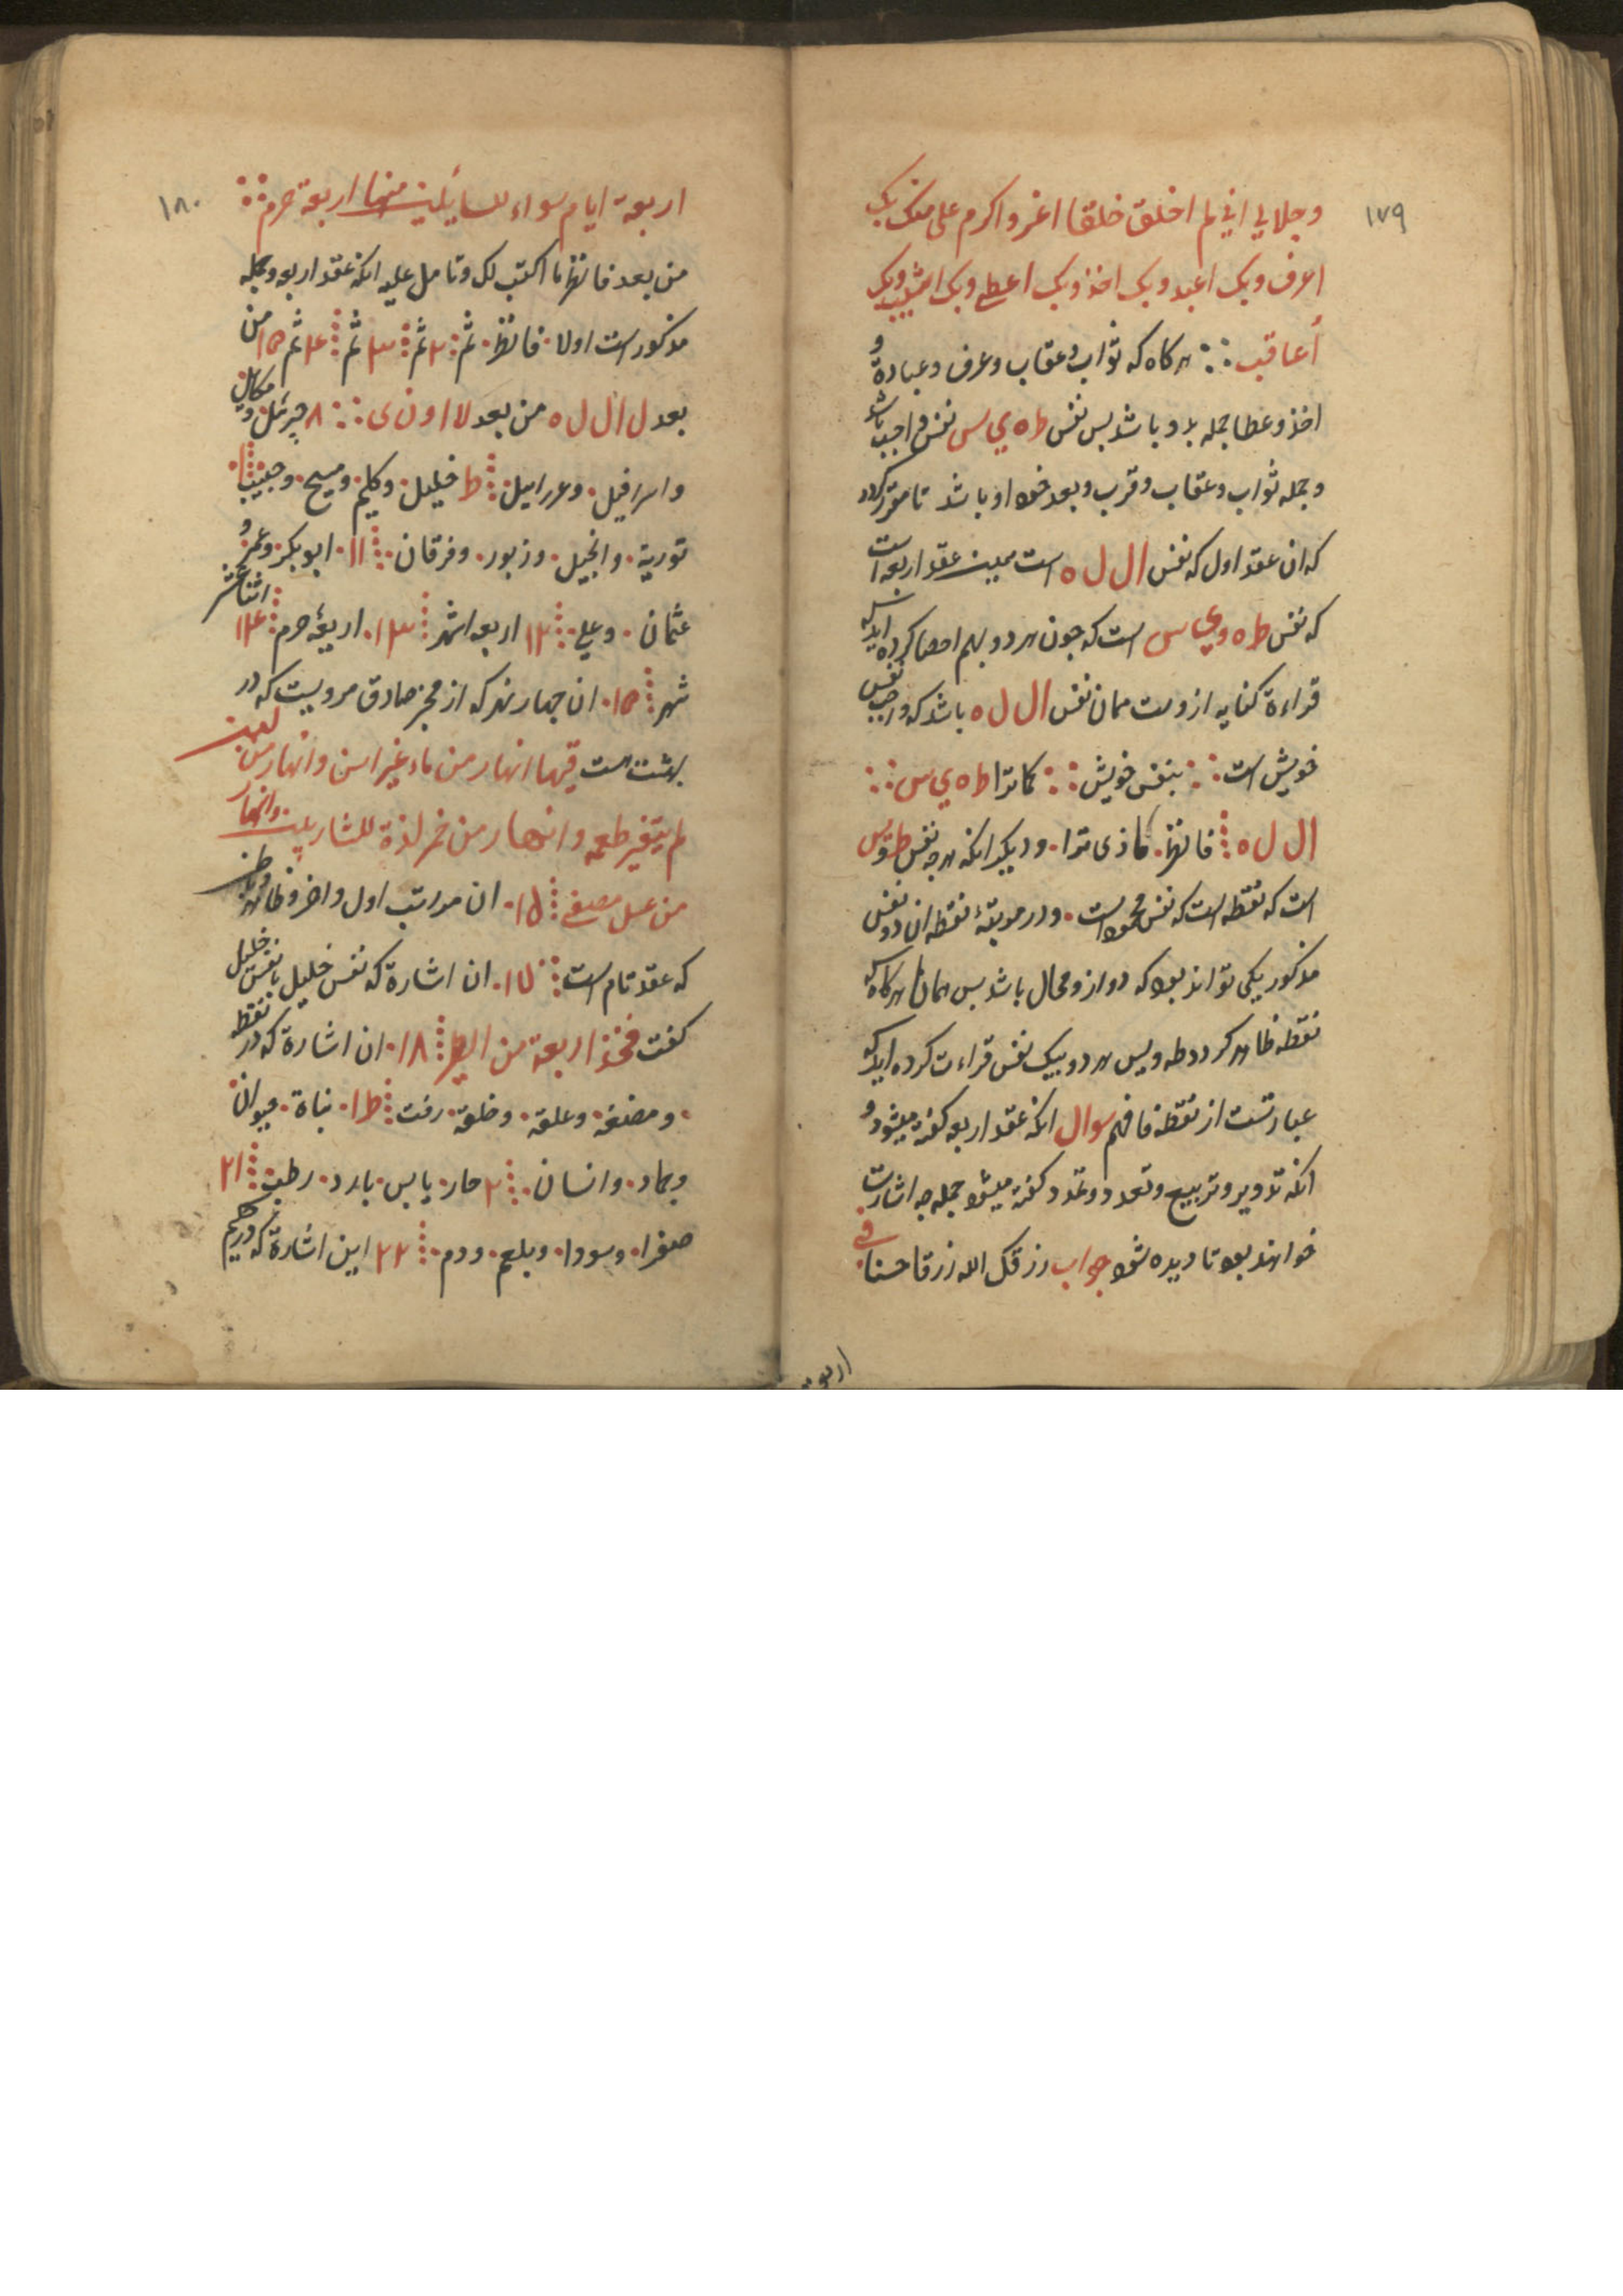 ١٧٩
وجلالي اني لم اخلق خلقا اعز و اكرم على منك بك
اعرف وبك اعبد وبك اخذ وبك اعطي وبك اثيب وبك
أعاقب هركاه كه ثواب وعقاب وعرف وعبادة و
اخذ وعطا جمله بدو باشد بس نفس ط ه ي س نفس واجب باشد
وجمله ثواب وعقاب وقرب وبعد خود او باشد تا مقرر كردد
كه ان عقد اول كه نفس ال ل ه است مبين عقد اربعه است
كه نفس ط ه و ي س است كه جون هر دو بهم احصا كرده ايد بس
قراءة كنايه ازوست همان نفس ال ل ه باشد كه واجب نفس
خويش است بنفس خويش كما ترا ط ه ي س
ال ل ه فانظر كما ذى ترا وديكر انكه هرجه نفس طه ويس
است كه نقطه است كه نفس محمود است ودر مرتبۀ نقطه ان دو نفس
مذكور يكى تواند بود كه دو ازو محال باشد بس همانا هركاه كه
نقطه ظاهر كردد طه ويس هر دو بيك نفس قراءت كرده ايد كه
عبارتست از نقطه فافهم سوال انكه عقد اربعه كفته ميشود و
انكه تدوير وتربيع وتعدد وتمدد كفته ميشود جمله جه اشارت
خواهند بود تا ديده شود جواب رزقك الله رزقا حسنا في
اربعة
١٨٠
اربعة ايام سواء للسايلين منها اربعة حرم
من بعد فانظر ما اكتب لك وتامل عليه انكه عقد اربعه وجمله
مذكور است اولا فانظر ثم ٢ ثم ٣ ثم ٤ ثم ٥ من
بعد ل ال ل ه من بعد لا ا و ن ى ٨ جبرئيل و مكايل
واسرافيل وعزراييل ط خليل وكليم ومسيح وحبيب ١٠
تورية وانجيل وزبور وفرقان ١١ ابوبكر وعمر و
عثمان وعلي ١٢ اربعه اشهر ١٣ اربعۀ حرم ١٤ اثنا عشر
شهر ١٥ ان جهار نهر كه از مخبر صادق مرويست كه در
بهشت است فيها انهار من ماء غير اسن وانهار من لبن
لم يتغير طعمه وانهار من خمر لذة للشاربين وانهار
من عسل مصفى ١٥ ان مراتب اول واخر وظاهر وباطن
كه عقد تام است ١٧ ان اشارة كه نفس خليل با نفس خليل
كفت فخذ اربعة من الطير ١٨ ان اشارة كه در نقطه
ومضغه وعلقه وخلقه رفت ١ط نباة حيوان
وجماد وانسان ٢ حار يابس بارد رطب ٢١
صفرا وسودا وبلغم ودم ٢٢ اين اشارة كه دريم